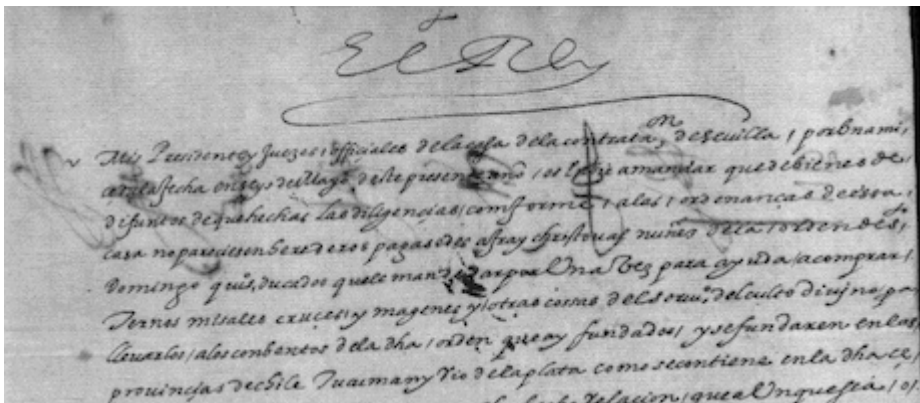 El Rey
Mis Presidente y Juezes officiales de la casa de la contratan de sevilla / por una mi /
fecha en seys de Mayo deste presente año / os enbie a mandar que de bienes de
difuntos de que hechas las diligencias / comforme / a las / ordenanças de essa /
casa no pareciesen herederos pagasedes a fray christoual nuñes de la / orden de sto
Domingo ducados que le mande dar por Una Vez para ayuda / a comprar /
Ternos misales cruces / y magenes y / otras cossas del seruio del culto diujno pa
lleuarlos / a los conbentos de la dha / orden que ay fundados / y se fundaren en las
prouincias de chile Tucuman y Rio de la plata como se contiene en la dha ce
Relacion / que aUnque seia / os